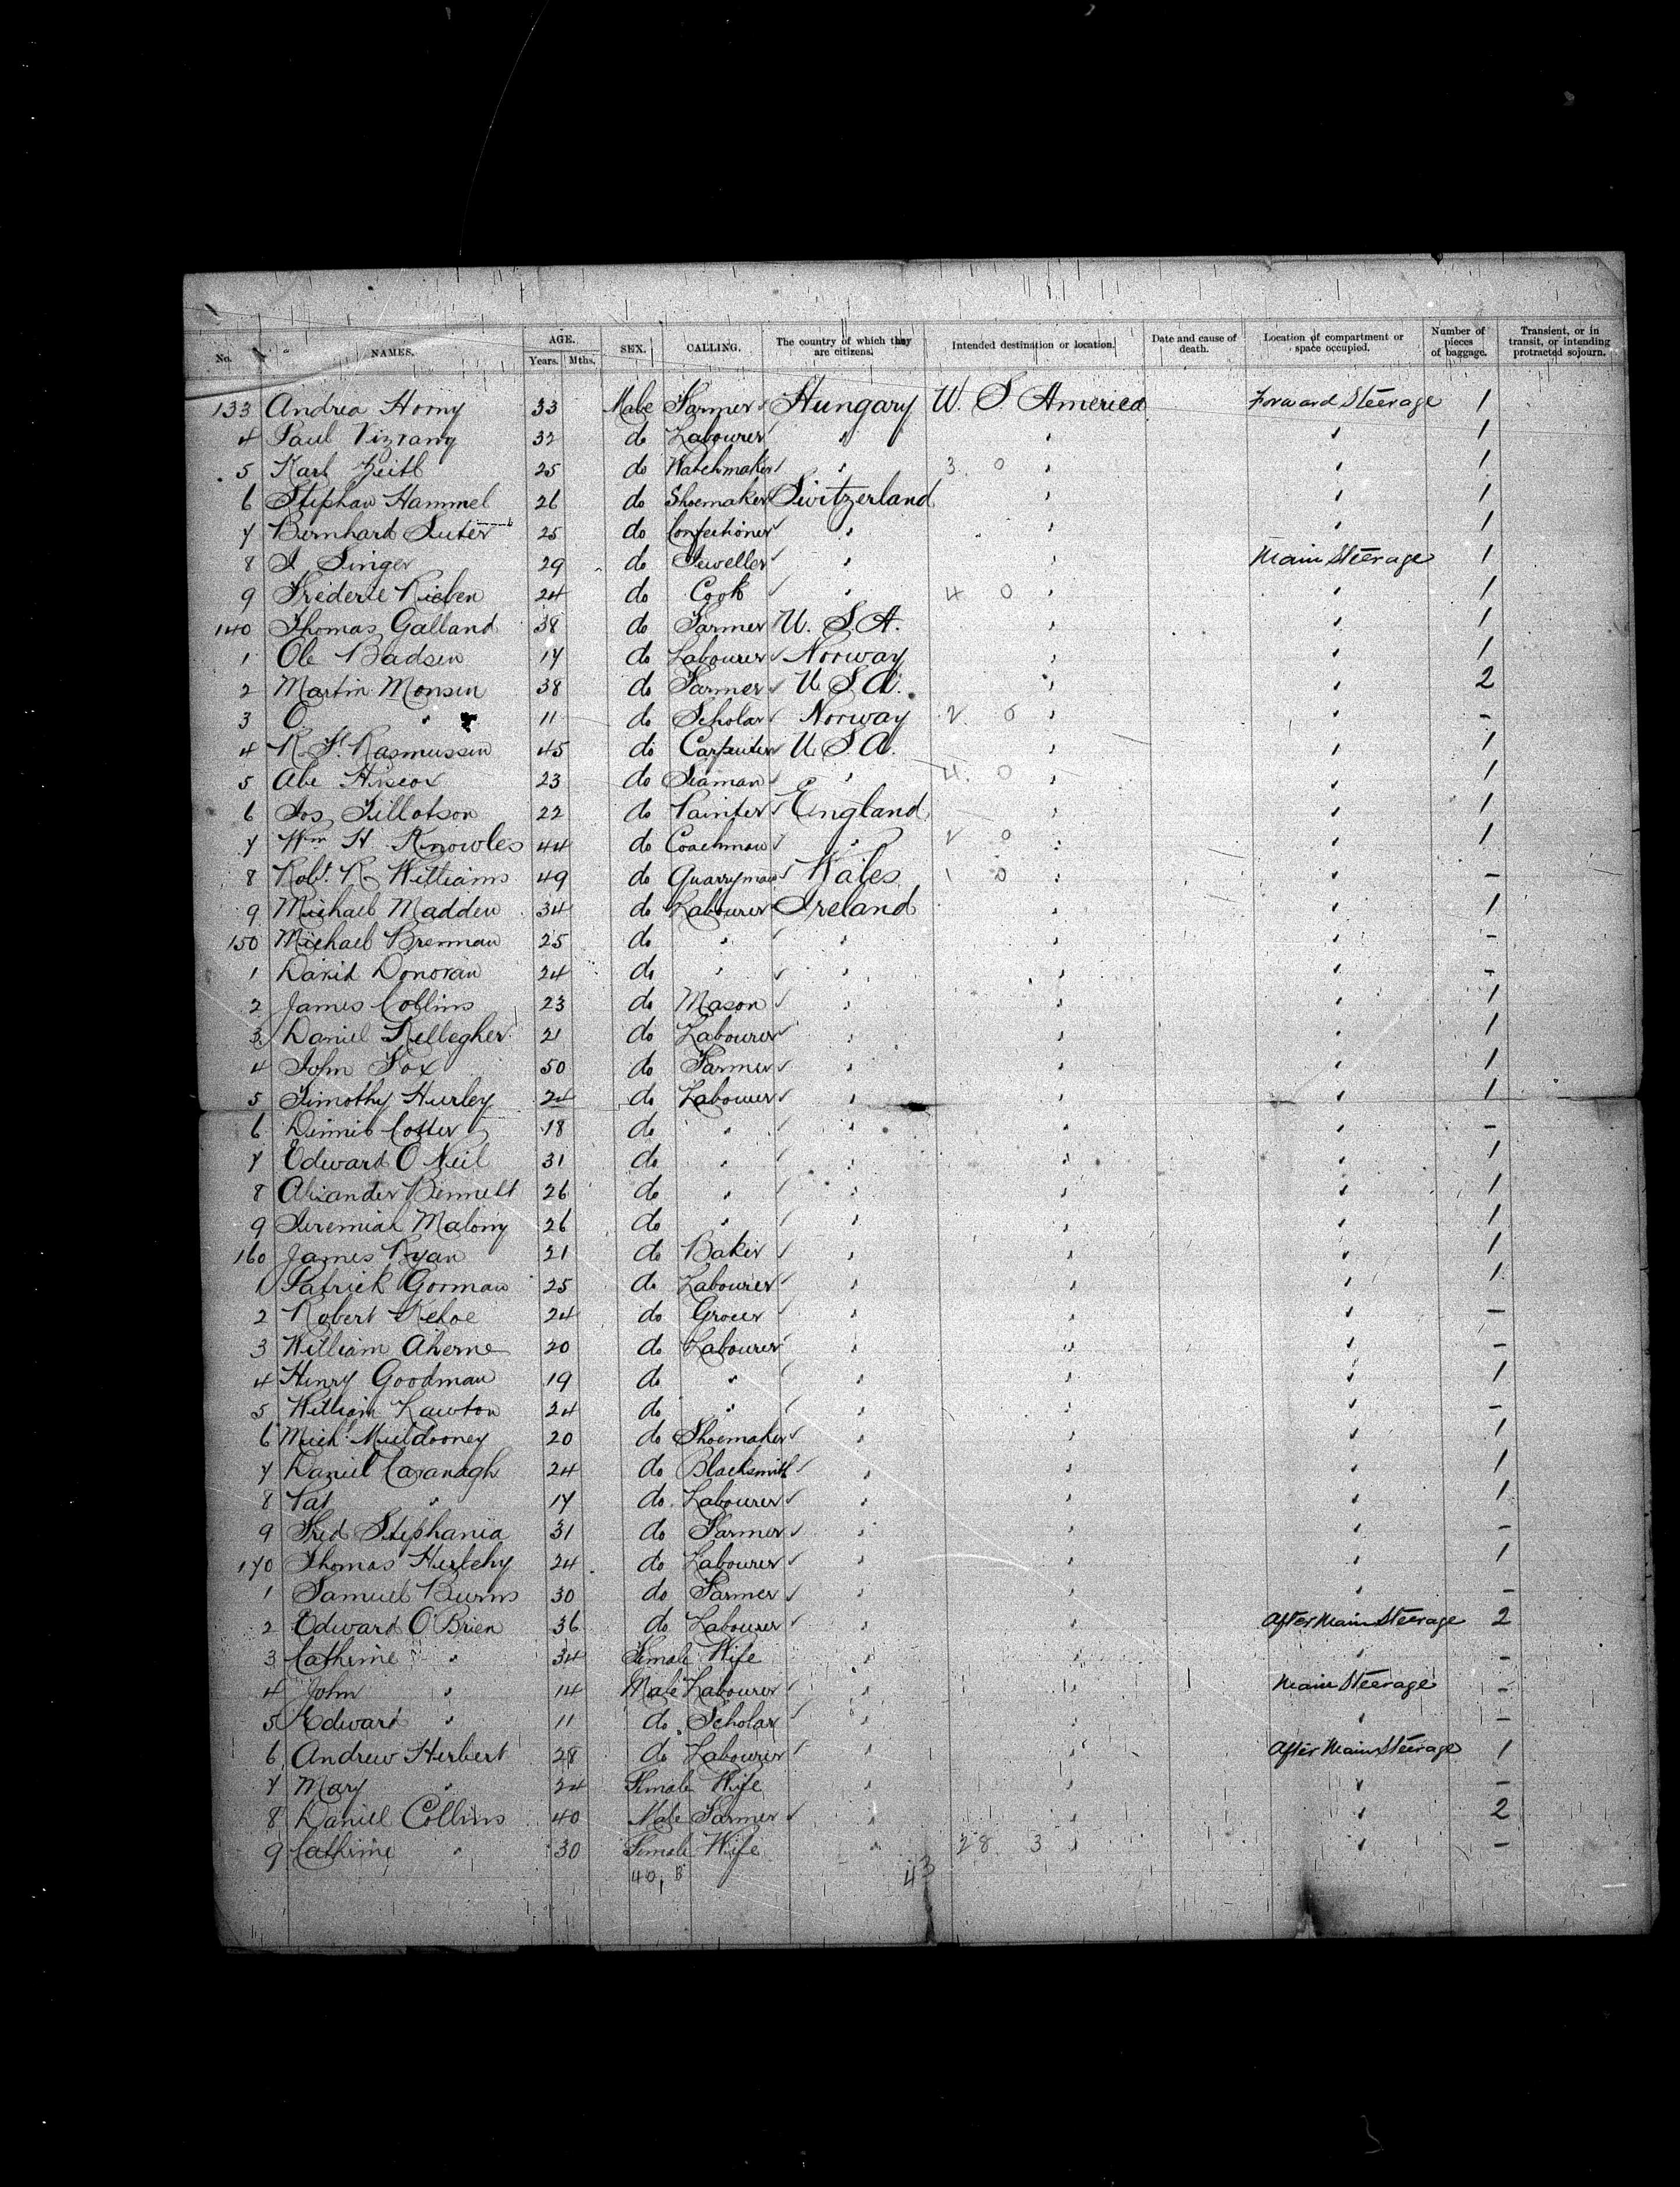 No. NAMES. AGE. Years. Mths. SEX. CALLING. The country of which they are citizens. Intended destination or location. Date and cause of death. Location of compartment or space occupied. Number of pieces of baggage. Transient, or in transit, or intending protracted sojourn.
133 Andrea Horny 33 Male Farmer Hungary U. S America Forward Steerage 1
4 Paul 32 do Labourer " " " 1
5 Karl Zeitl 25 do Watchmaker " 3 0 " " 1
6 Stephan Hammel 26 do Shoemaker Switzerland " " 1
7 Bernhard Suter 25 do Confectioner " " " 1
8 I Singer 29 do Jeweller " " Main Steerage 1
9 Frederic Rieben 24 do Cook " 4 0 " " 1
140 Thomas Galland 38 do Farmer U. S. A. " " 1
1 Ole Badsen 17 do Labourer Norway " " 1
2 Martin Monsen 38 do Farmer U S A. " " 2
3 O. " 11 do Scholar Norway 2 0 " " -
4 R. Rasmussen 45 do Carpenter U S A. " " 1
5 Abe Hiscox 23 do Seaman " 4 0 " " 1
6 Jos Tillotson 22 do Painter England " " 1
7 Wm H Knowles 44 do Coachman " 2 0 " 1
8 Robt. R Williams 49 do Quarryman Wales 1 0 " " -
9 Michael Madden 34 do Labourer Ireland " " 1
150 Michael Brennan 25 do " " " " -
1 David Donovan 24 do " " " " -
2 James Collins 23 do Mason " " " 1
3 Daniel Kellegher 21 do Labourer " " " 1
4 John Fox 50 do Farmer " " " 1
5 Timothy Hurley 24 do Labourer " " " 1
6 Dennis Cotter 18 do " " " " -
7 Edward O Neil 31 do " " " " 1
8 Alexander Bennett 26 do " " " " 1
9 Jeremiah Malony 26 do " " " " 1
160 James Ryan 21 do Baker " " " 1
1 Patrick Gorman 25 do Labourer " " " 1
2 Robert Kehoe 24 do Grocer " " " -
3 William Aherne 20 do Labourer " " " -
4 Henry Goodman 19 do " " " " 1
5 William Lawton 24 do " " " " -
6 Mich. Muldooney 20 do Shoemaker " " " 1
7 Daniel Cavanagh 24 do Blacksmith " " " 1
8 Pat " 17 do Labourer " " " 1
9 Fred Stephania 31 do Farmer " " " -
170 Thomas Herlehy 24 do Labourer " " " 1
1 Samuel Burns 30 do Farmer " " " -
2 Edward O'Brien 36 do Labourer " " After Main Steerage 2
3 Catherine " 34 Female Wife " " " -
4 John " 14 Male Labourer " " Main Steerage -
5 Edward " 11 do Scholar " " " -
6 Andrew Herbert 28 do Labourer " " After Main Steerage 1
7 Mary " 24 Female Wife " " " -
8 Daniel Collins 40 Male Farmer " " " 2
9 Catherine " 30 Female Wife " 28 3 " " -
43